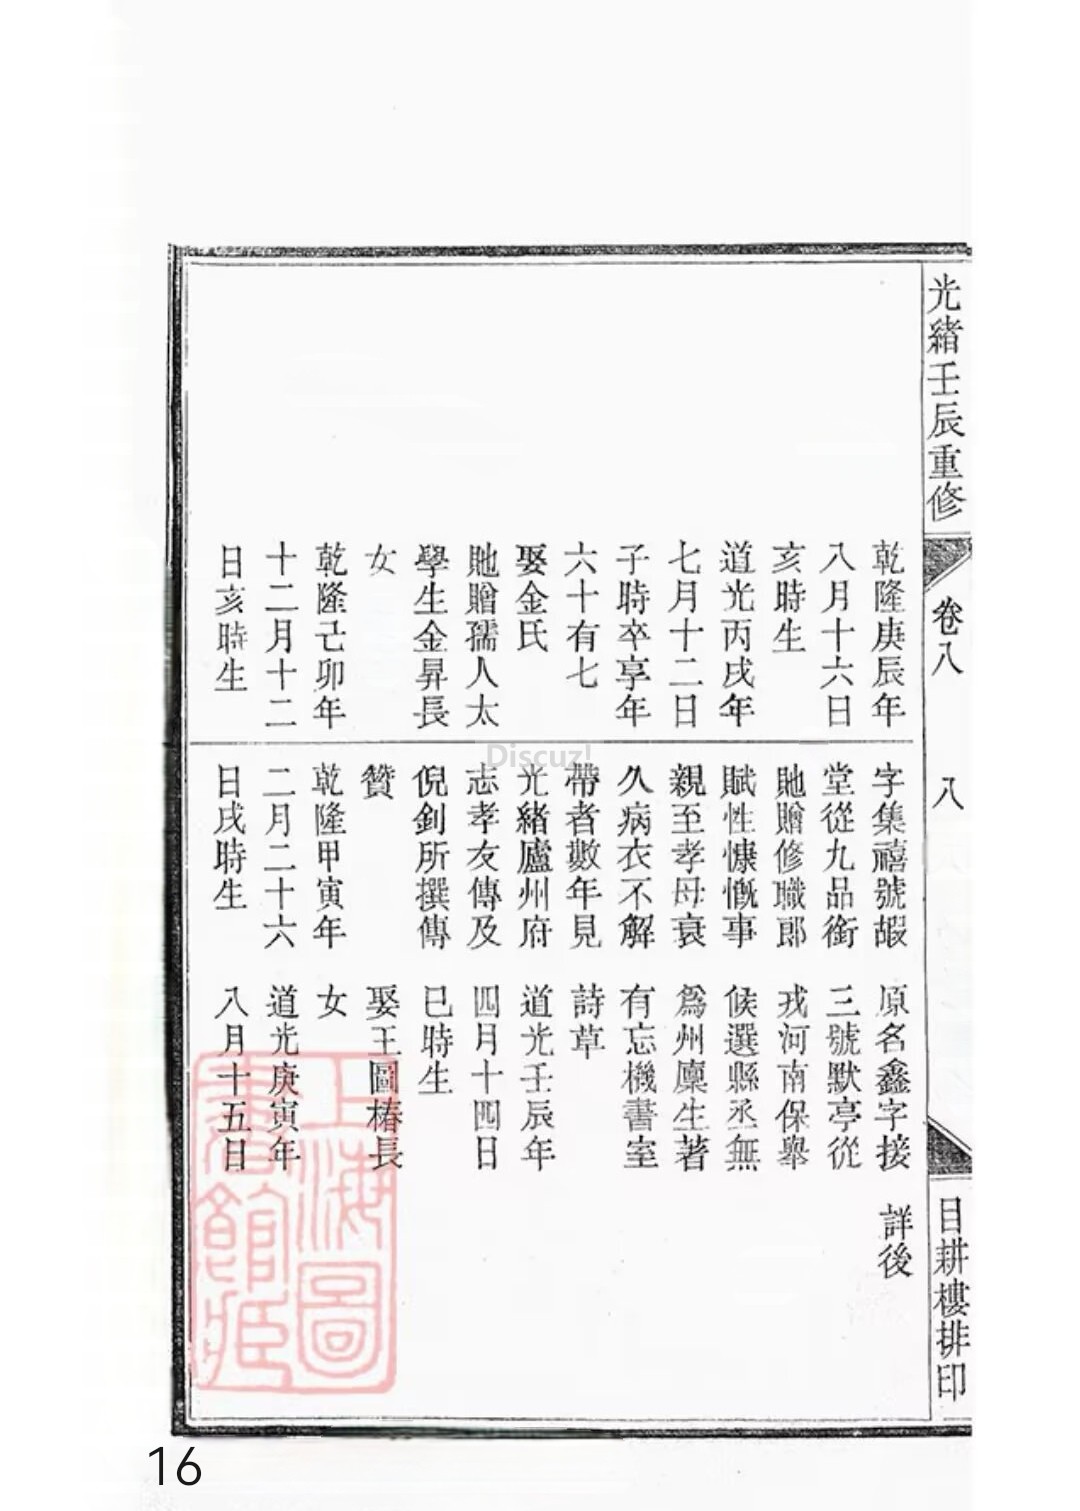 光緒壬辰重修
卷八
八
目耕樓排印
乾隆庚辰年
八月十六日
亥時生
道光丙戌年
七月十二日
子時卒享年
六十有七
娶金氏
貤贈孺人太
學生金昇長
女
乾隆己卯年
十二月十二
日亥時生
字集禧號嘏
堂從九品銜
貤贈修職郎
賦性慷慨事
親至孝母衰
久病衣不解
帶者數年見
光緒廬州府
志孝友傳及
倪釗所撰傳
贊
乾隆甲寅年
二月二十六
日戌時生
原名鑫字接
三號默亭從
戎河南保舉
候選縣丞無
爲州廩生著
有忘機書室
詩草
道光壬辰年
四月十四日
巳時生
娶王圖椿長
女
道光庚寅年
八月十五日
詳後
上海圖
書館藏
Discuz!
16